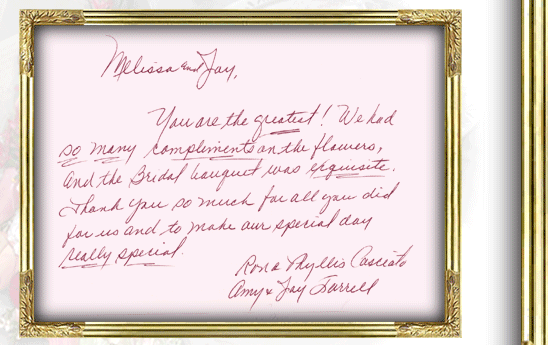 Melissa and Jay,
You are the greatest! We had
so many complements on the flowers,
and the Bridal bouquet was exquisite.
Thank you so much for all you did
for us and to make our special day
really special.
Ron & Phyllis Casciato
Amy & Jay Farrell